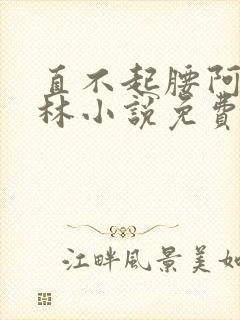 直不起腰阿
林小說免費
江畔風景美如